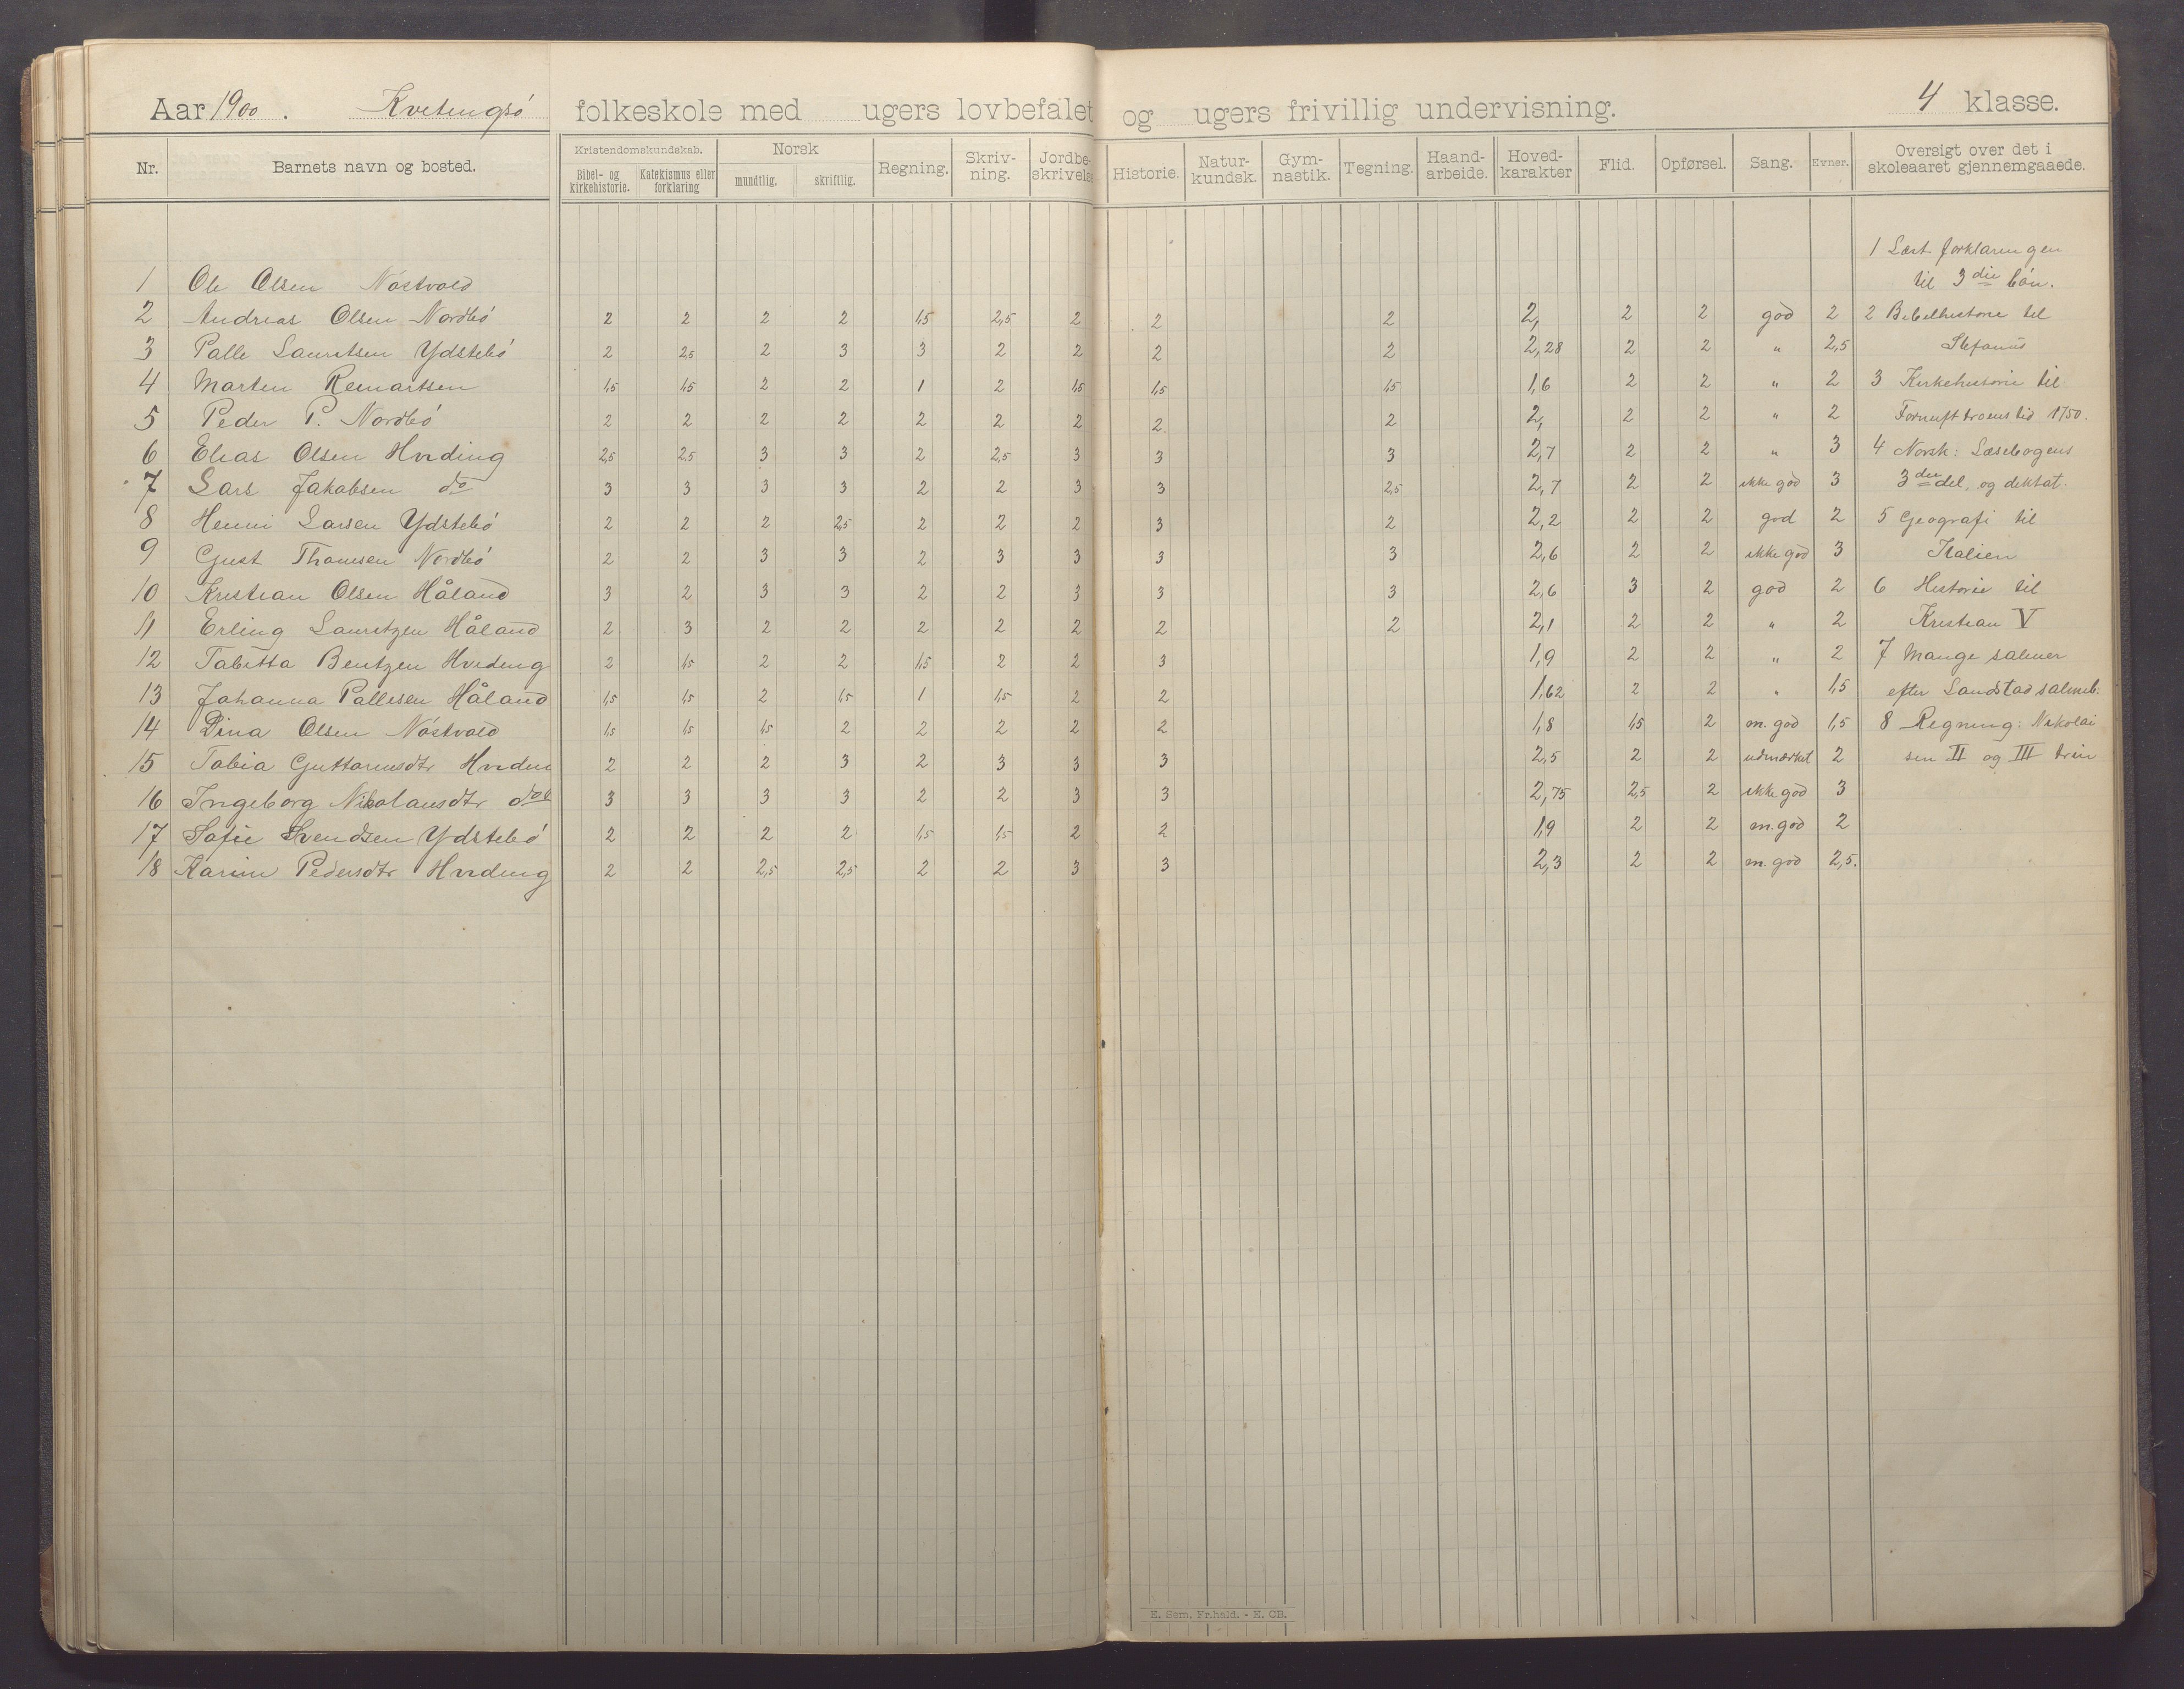 Aar 1900. Kvitingsö folkeskole med ugers lovbefalet og ugers frivillig undervisning. 4 klasse.
Nr. Barnets navn og bosted. Kristendomskundskab. Bibel- og kirkehistorie. Katekismus eller forklaring Norsk mundtlig. skriftlig. Regning. Skriv-ning. Jordbe-skrivelse Historie. Natur-kundsk. Gym-nastik. Tegning. Haand-arbeide. Hoved-karakter Flid. Opførsel. Sang. Evner. Oversigt over det i skoleaaret gjennemgaaede.
1 Læst forklaringen
1 Ole Olsen Nöstvold til 3die bön.
2 Andreas Olsen Nordbö 2 2 2 2 1,5 2,5 2 2 2 2, 2 2 god 2 2 Bibelhistorie til
3 Palle Lauritsen Ydstebö 2 2,5 2 3 3 2 2 2 2 2,28 2 2 " 2,5 Stefanus
4 Marten Reinartsen 1,5 1,5 2 2 1 2 1,5 1,5 1,5 1,6 2 2 " 2 3 Kirkehistorie til
5 Peder P. Nordbö 2 2 2 2 2 2 2 2 2 2, 2 2 " 2 Fornufttroens tid 1750.
6 Elias Olsen Hviding 2,5 2,5 3 3 2 2,5 3 3 3 2,7 2 2 " 3 4 Norsk: Læsebogens
7 Lars Jakobsen do 3 3 3 3 2 2 3 3 2,5 2,7 2 2 ikke god 3 3die del. og diktat.
8 Henni Larsen Ydstebö 2 2 2 2,5 2 2 2 3 2 2,2 2 2 god 2 5 Geografi til
9 Gust Thomsen Nordbö 2 2 3 3 2 3 3 3 3 2,6 2 2 ikke god 3 Italien
10 Kristian Olsen Håland 3 2 3 3 2 2 3 3 3 2,6 3 2 god 2 6 Historie til
11 Erling Lauritzen Håland 2 3 2 2 2 2 2 2 2 2,1 2 2 " 2 Kristian V
12 Tabitta Bentzen Hviding 2 1,5 2 2 1,5 2 2 3 1,9 2 2 " 2 7 Mange salmer
13 Johanna Pallesen Håland 1,5 1,5 2 1,5 1 1,5 2 2 1,62 2 2 " 1,5 efter Landstad salmeb.
14 Dina Olsen Nöstvold 1,5 1,5 1,5 2 2 2 2 2 1,8 1,5 2 m. god 1,5 8 Regning: Nikolai
15 Tobia Guttormsdtr Hvidin 2 2 2 3 2 3 3 3 2,5 2 2 udmærket 2 sen II og III trin
16 Ingeborg Nikolausdtr do 3 3 3 3 2 2 3 3 2,75 2,5 2 ikke god 3
17 Sofie Svendsen Ydstebö 2 2 2 2 1,5 1,5 2 2 1,9 2 2 m. god 2
18 Karin Pedersdtr Hviding 2 2 2,5 2,5 2 2 3 3 2,3 2 2 m. god 2,5.
E. Sem, Fr.hald. - K. CB.